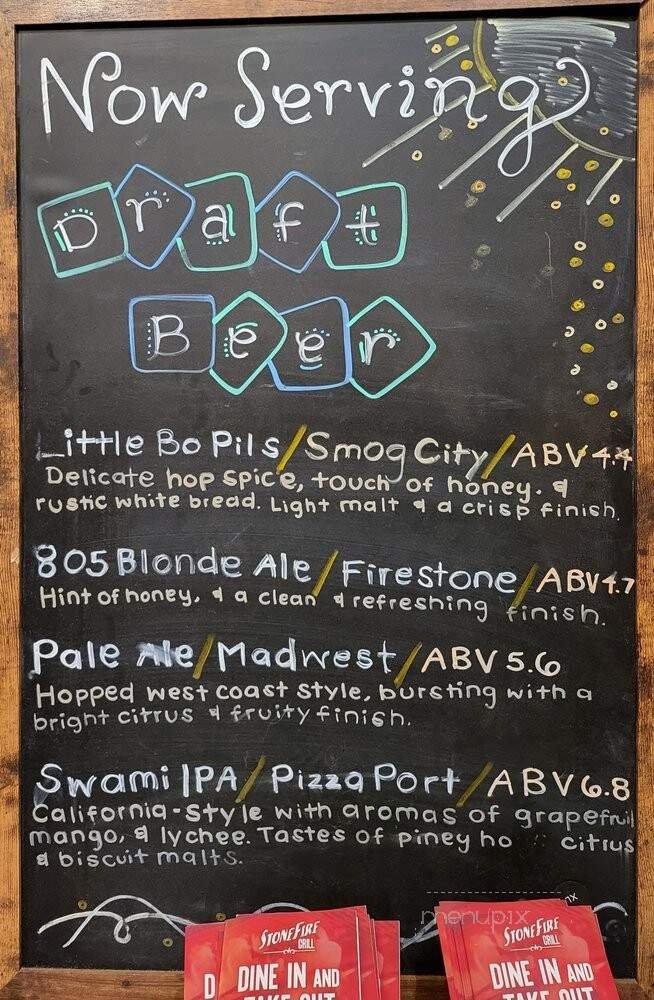 Now Serving
Draft
Beer
Little Bo Pils/Smog City/ABV 4.4
Delicate hop spice, touch of honey. &
rustic white bread. Light malt & a crisp finish.
805 Blonde Ale/Firestone/ABV 4.7
Hint of honey, & a clean & refreshing finish.
Pale Ale/Madwest/ABV 5.6
Hopped west coast style, bursting with a
bright citrus & fruity finish.
Swami IPA/Pizza Port/ABV 6.8
California-style with aromas of grapefruit
mango, & lychee. Tastes of piney ho citrus
& biscuit malts.
menupix
STONEFIRE
GRILL
D DINE IN AND
TAKE OUT
STONEFIRE
GRILL
DINE IN AND